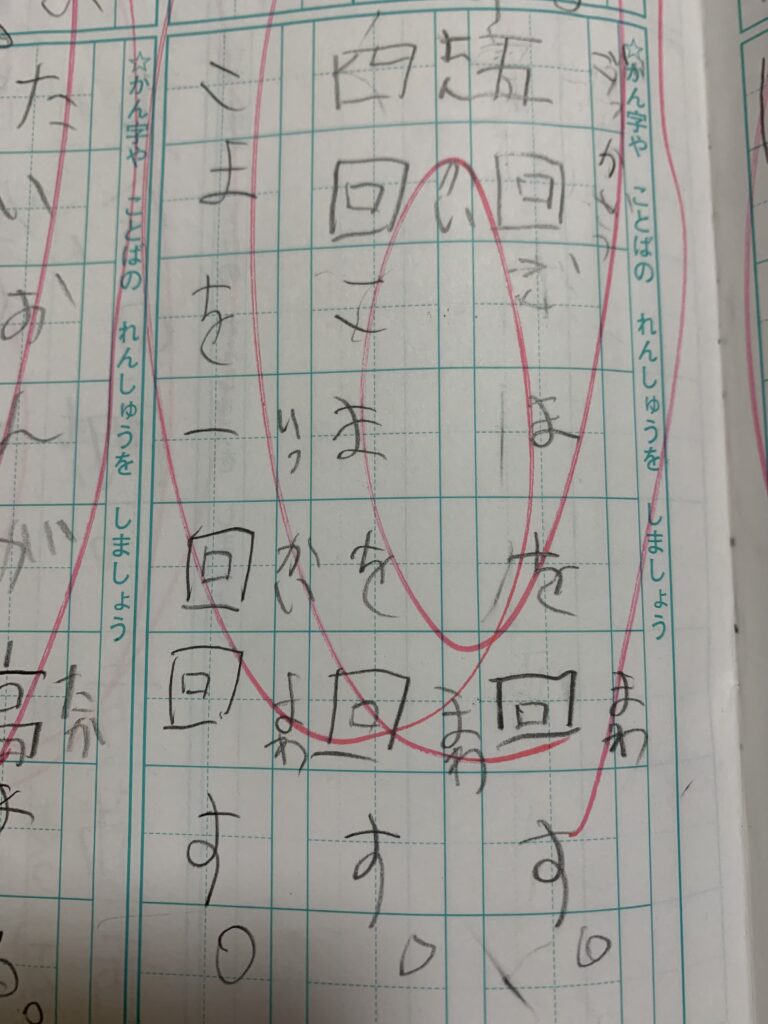 ☆かん字や ことばの れんしゅうを しましょう
まわ
五回ごまを回す。
よんかい まわ
四回こまを回す。
いっかい まわ
こまを一回回す。
☆かん字や ことばの れんしゅうを しましょう
たか
たいおんが高